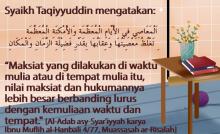 Syaikh Taqiyyuddin mengatakan:
المعاصي في الأيام المعظمة والأمكنة المعظمة
تغلظ معصيتها وعقابها بقدر فضيلة الزمان والمكان
"Maksiat yang dilakukan di waktu
mulia atau di tempat mulia itu,
nilai maksiat dan hukumannya
lebih besar berbanding lurus
dengan kemuliaan waktu dan
tempat." [Al-Adab asy-Syar'iyyah karya
Ibnu Muflih al-Hanbali 4/77, Muassasah ar-Risalah]